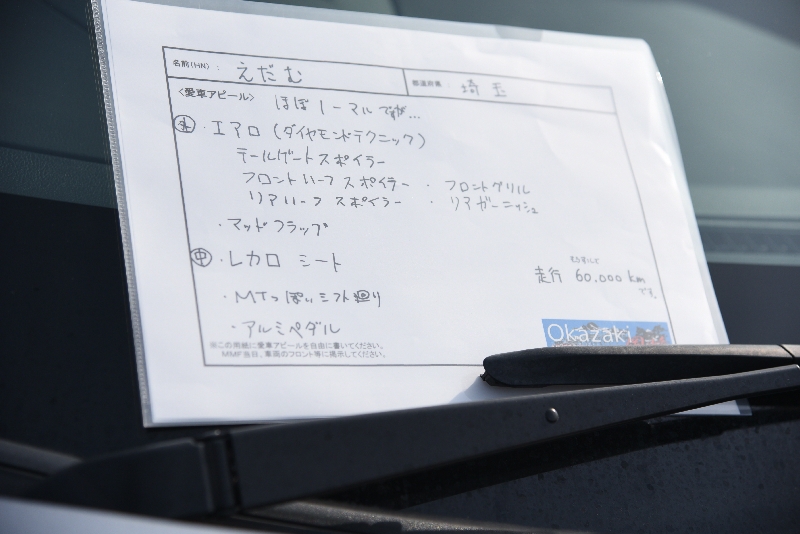 名前(HN): えだむ
都道府県: 埼玉
〈愛車アピール〉 ほぼノーマルですが…
外 ・エアロ (ダイヤモンドテクニック)
テールゲートスポイラー
フロントハーフスポイラー ・ フロントグリル
リアハーフスポイラー ・ リアガーニッシュ
・マッドフラップ
中 ・レカロ シート
走行 60.000 kmです。
・MTっぽいシフト廻り
・アルミペダル
※この用紙に愛車アピールを自由に書いてください。
MMF当日、車両のフロント等に掲示してください。
Okazaki